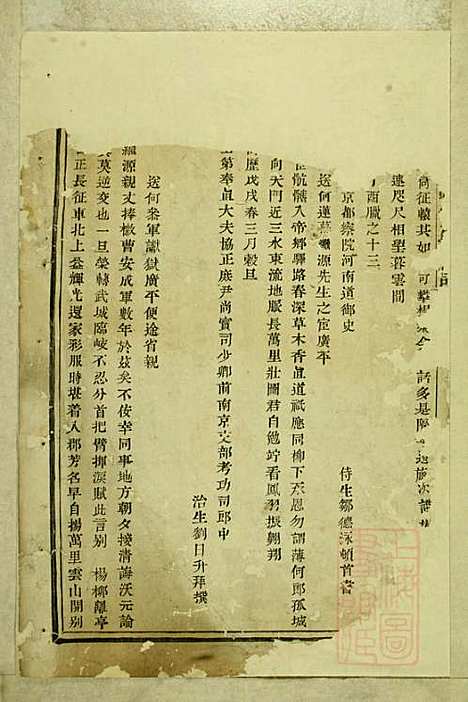 尙征轅其如 可攀 話多是
連咫尺相望暮雲間
酉臘之十三
京都察院河南道御史
侍生鄒德泳頓首書
送何蓮 源先生之宦廣平
骯髒入帝鄉驛路春深草木香眞道祇應同柳下承恩勿謂薄何郞孤城
向天門近三水東流地脈長萬里壯圖君自勉竚看鳳羽振翺翔
曆戊戌春三月穀旦
第奉直大夫協正庶尹尚寶司少卿前南京文部考功司郎中
治生劉日升拜撰
送何叅軍讞獄廣平便途省親
源親丈捧檄曹安成軍數年於玆矣不佞幸同事地方朝夕接淸誨沃元論
莫逆交也一旦榮轉武城臨岐不忍分首把臂揮淚賦此言别 楊柳離亭
正長征東北上益輝光還家彩服時堪着入郡芳名早自揚萬里雲山開别